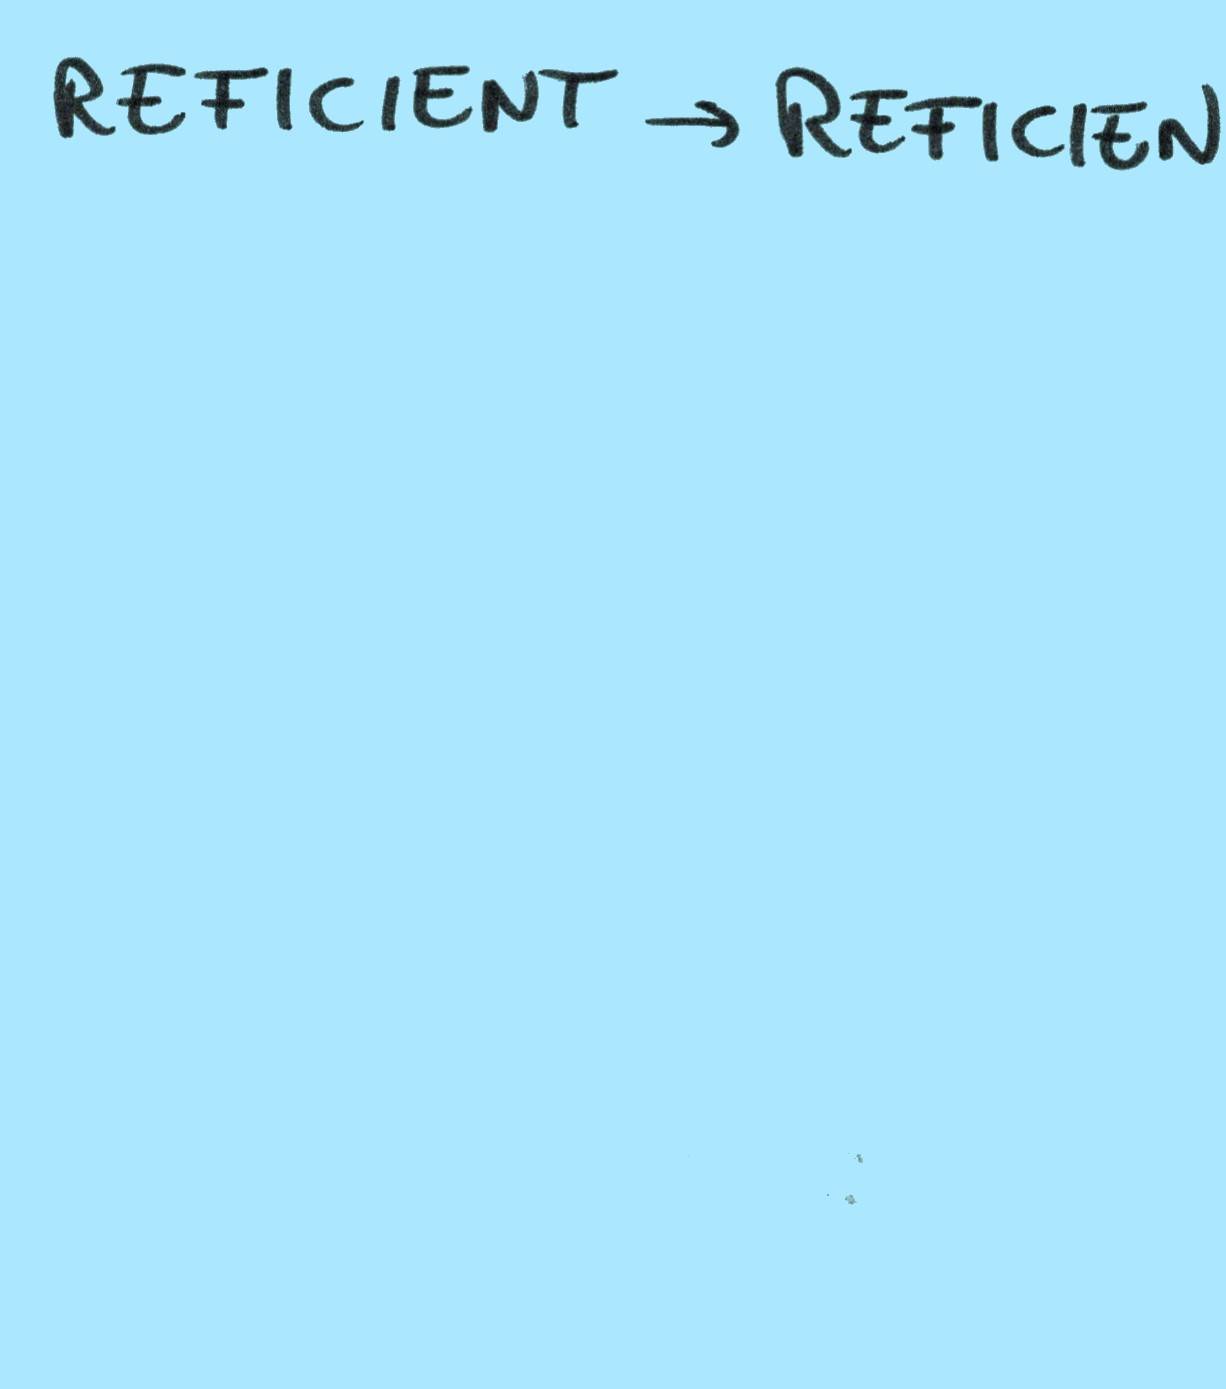 REFICIENT → REFICIEN